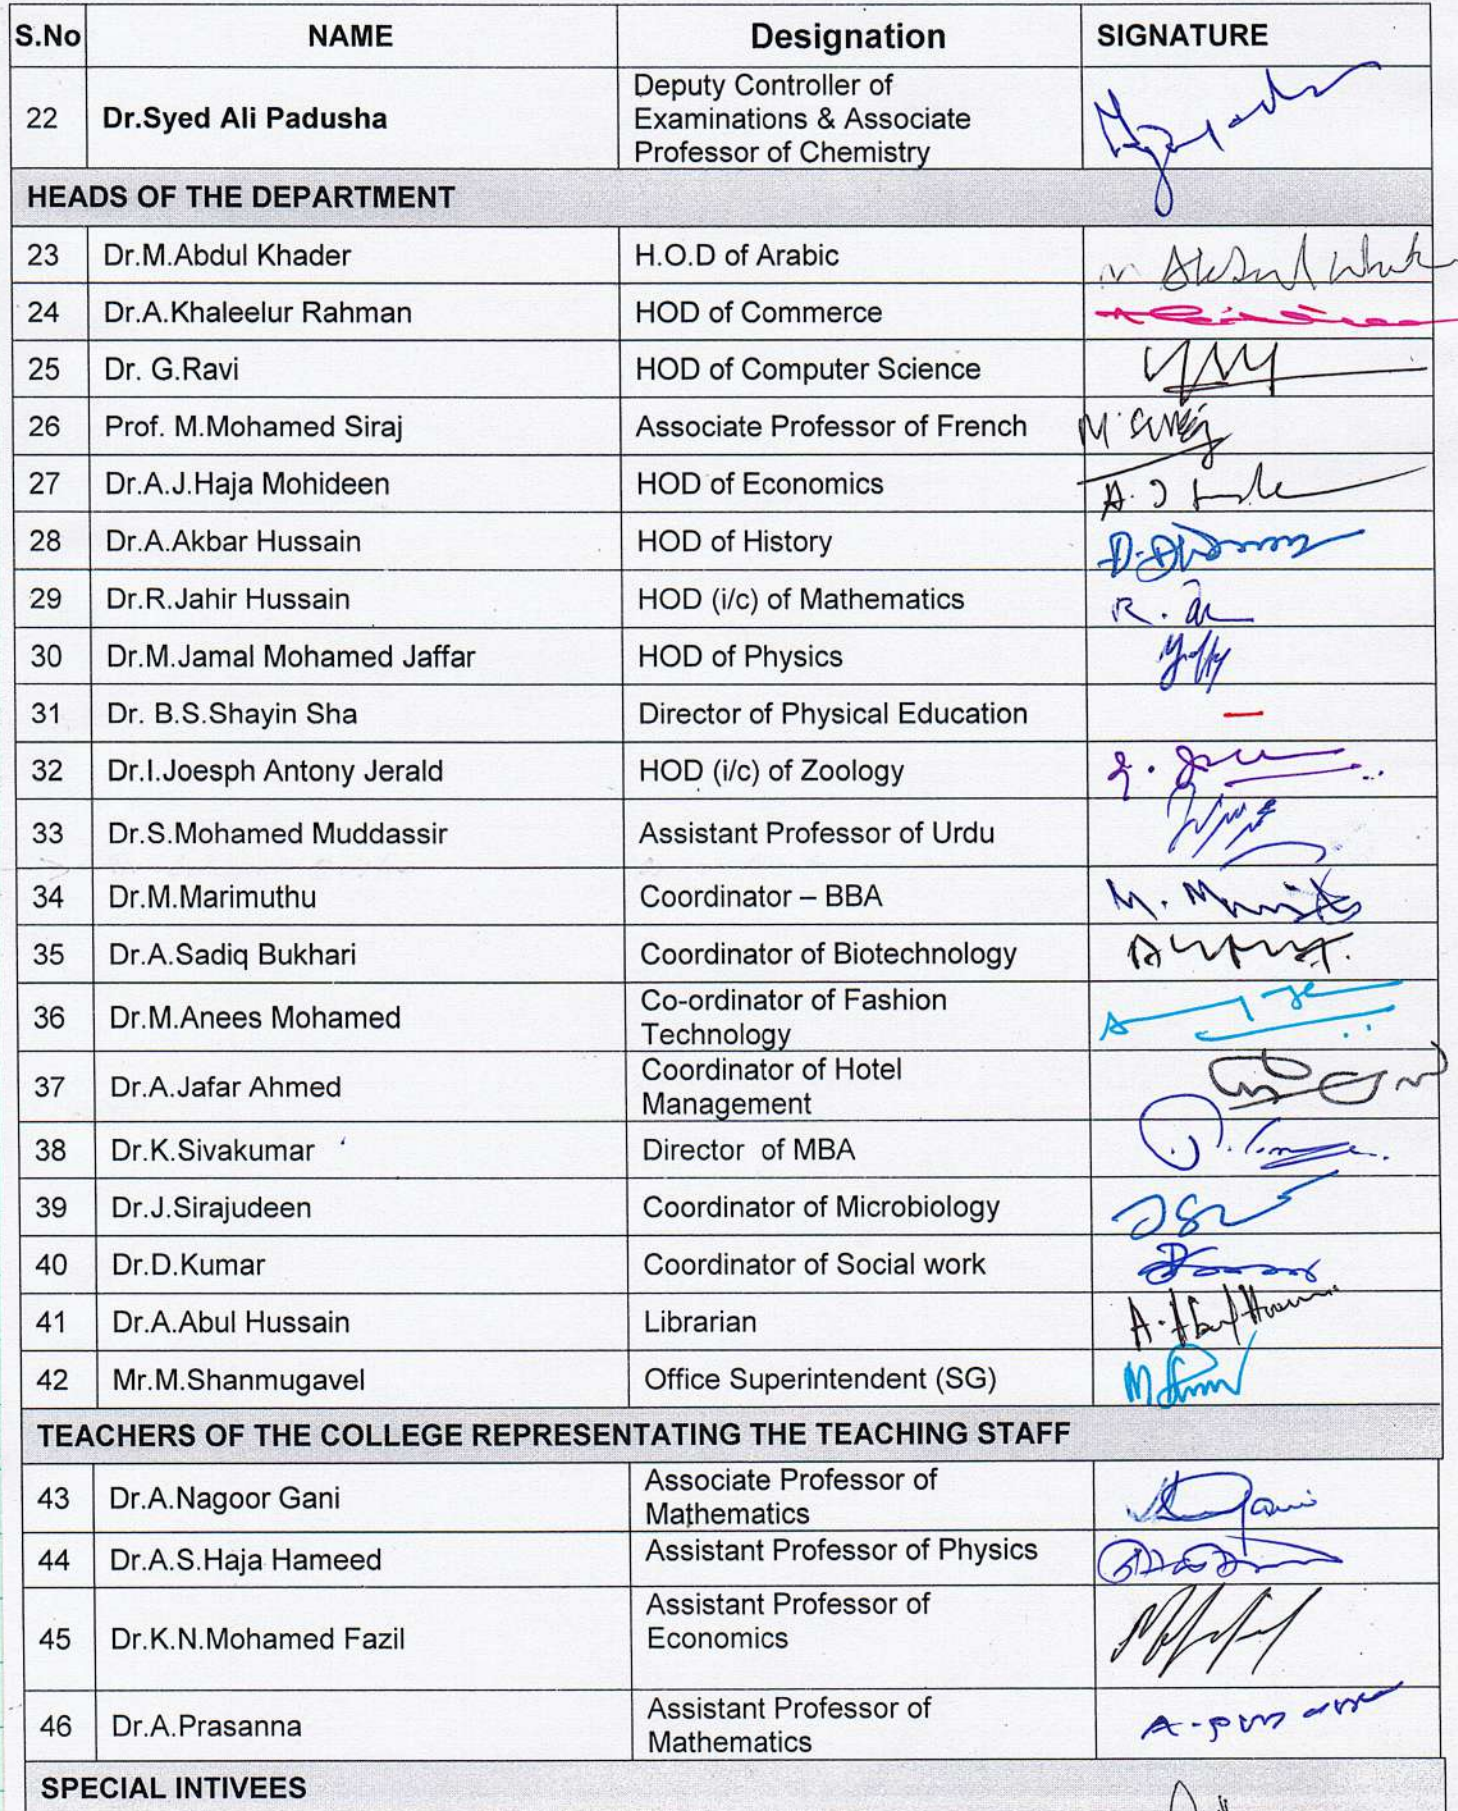 S.No NAME Designation SIGNATURE
22 Dr.Syed Ali Padusha Deputy Controller of
Examinations & Associate
Professor of Chemistry
HEADS OF THE DEPARTMENT
23 Dr.M.Abdul Khader H.O.D of Arabic
24 Dr.A.Khaleelur Rahman HOD of Commerce
25 Dr. G.Ravi HOD of Computer Science
26 Prof. M.Mohamed Siraj Associate Professor of French
27 Dr.A.J.Haja Mohideen HOD of Economics
28 Dr.A.Akbar Hussain HOD of History
29 Dr.R.Jahir Hussain HOD (i/c) of Mathematics
30 Dr.M.Jamal Mohamed Jaffar HOD of Physics
31 Dr. B.S.Shayin Sha Director of Physical Education
32 Dr.I.Joesph Antony Jerald HOD (i/c) of Zoology
33 Dr.S.Mohamed Muddassir Assistant Professor of Urdu
34 Dr.M.Marimuthu Coordinator – BBA
35 Dr.A.Sadiq Bukhari Coordinator of Biotechnology
36 Dr.M.Anees Mohamed Co-ordinator of Fashion
Technology
37 Dr.A.Jafar Ahmed Coordinator of Hotel
Management
38 Dr.K.Sivakumar Director of MBA
39 Dr.J.Sirajudeen Coordinator of Microbiology
40 Dr.D.Kumar Coordinator of Social work
41 Dr.A.Abul Hussain Librarian
42 Mr.M.Shanmugavel Office Superintendent (SG)
TEACHERS OF THE COLLEGE REPRESENTATING THE TEACHING STAFF
43 Dr.A.Nagoor Gani Associate Professor of
Mathematics
44 Dr.A.S.Haja Hameed Assistant Professor of Physics
45 Dr.K.N.Mohamed Fazil Assistant Professor of
Economics
46 Dr.A.Prasanna Assistant Professor of
Mathematics
SPECIAL INTIVEES